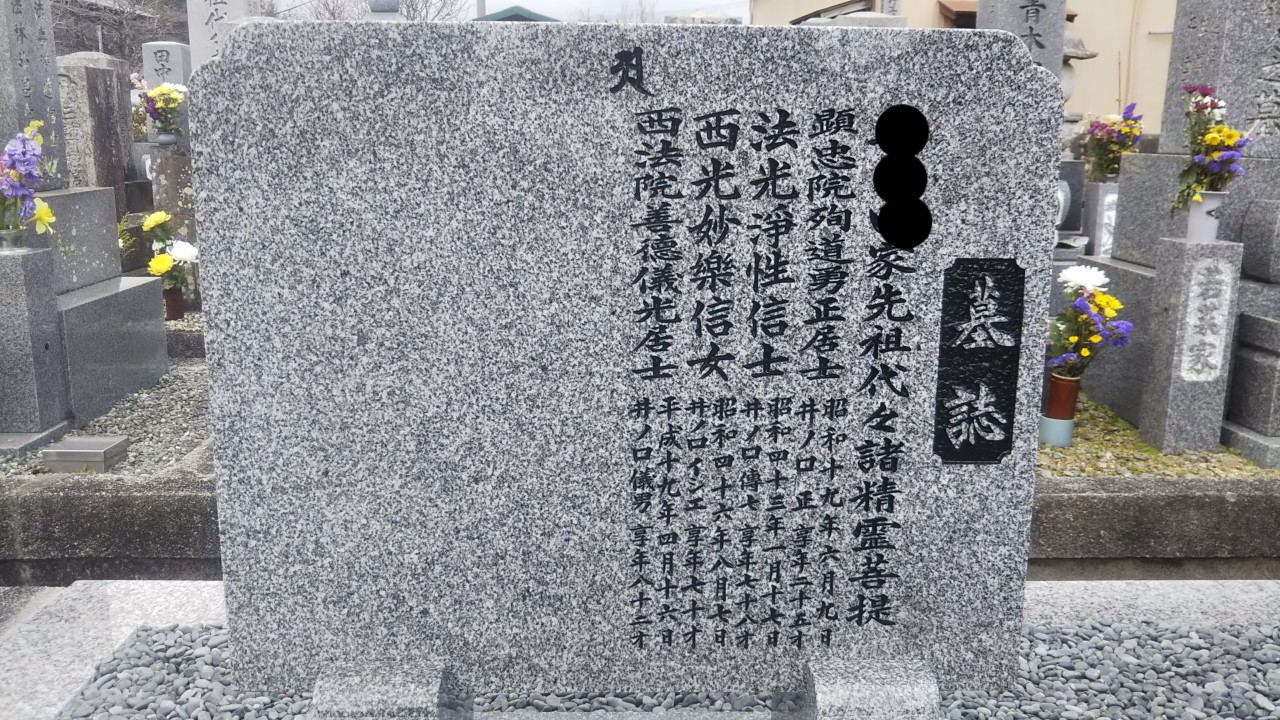 墓誌
家先祖代々諸精霊菩提
顕忠院殉道勇正居士
昭和十九年六月九日
井ノ口 正 享年二十五才
法光淨性信士
昭和四十三年一月十七日
井ノ口傳七 享年七十八才
西光妙樂信女
昭和四十六年八月七日
井ノロイシエ 享年七十才
西法院善徳儀光居士
平成十九年四月十六日
井ノ口儀男 享年八十二才
青木